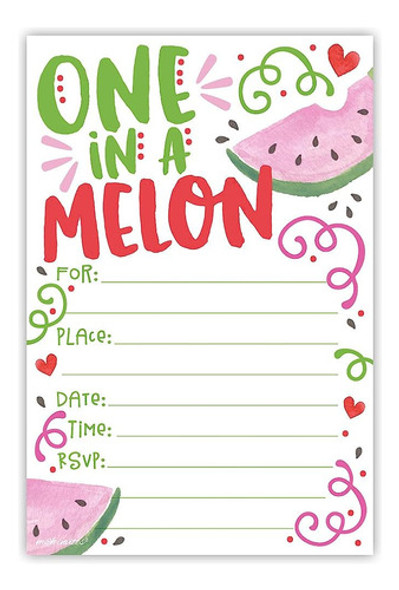 ONE
IN A
MELON
FOR:
PLACE:
DATE:
TIME:
RSVP: